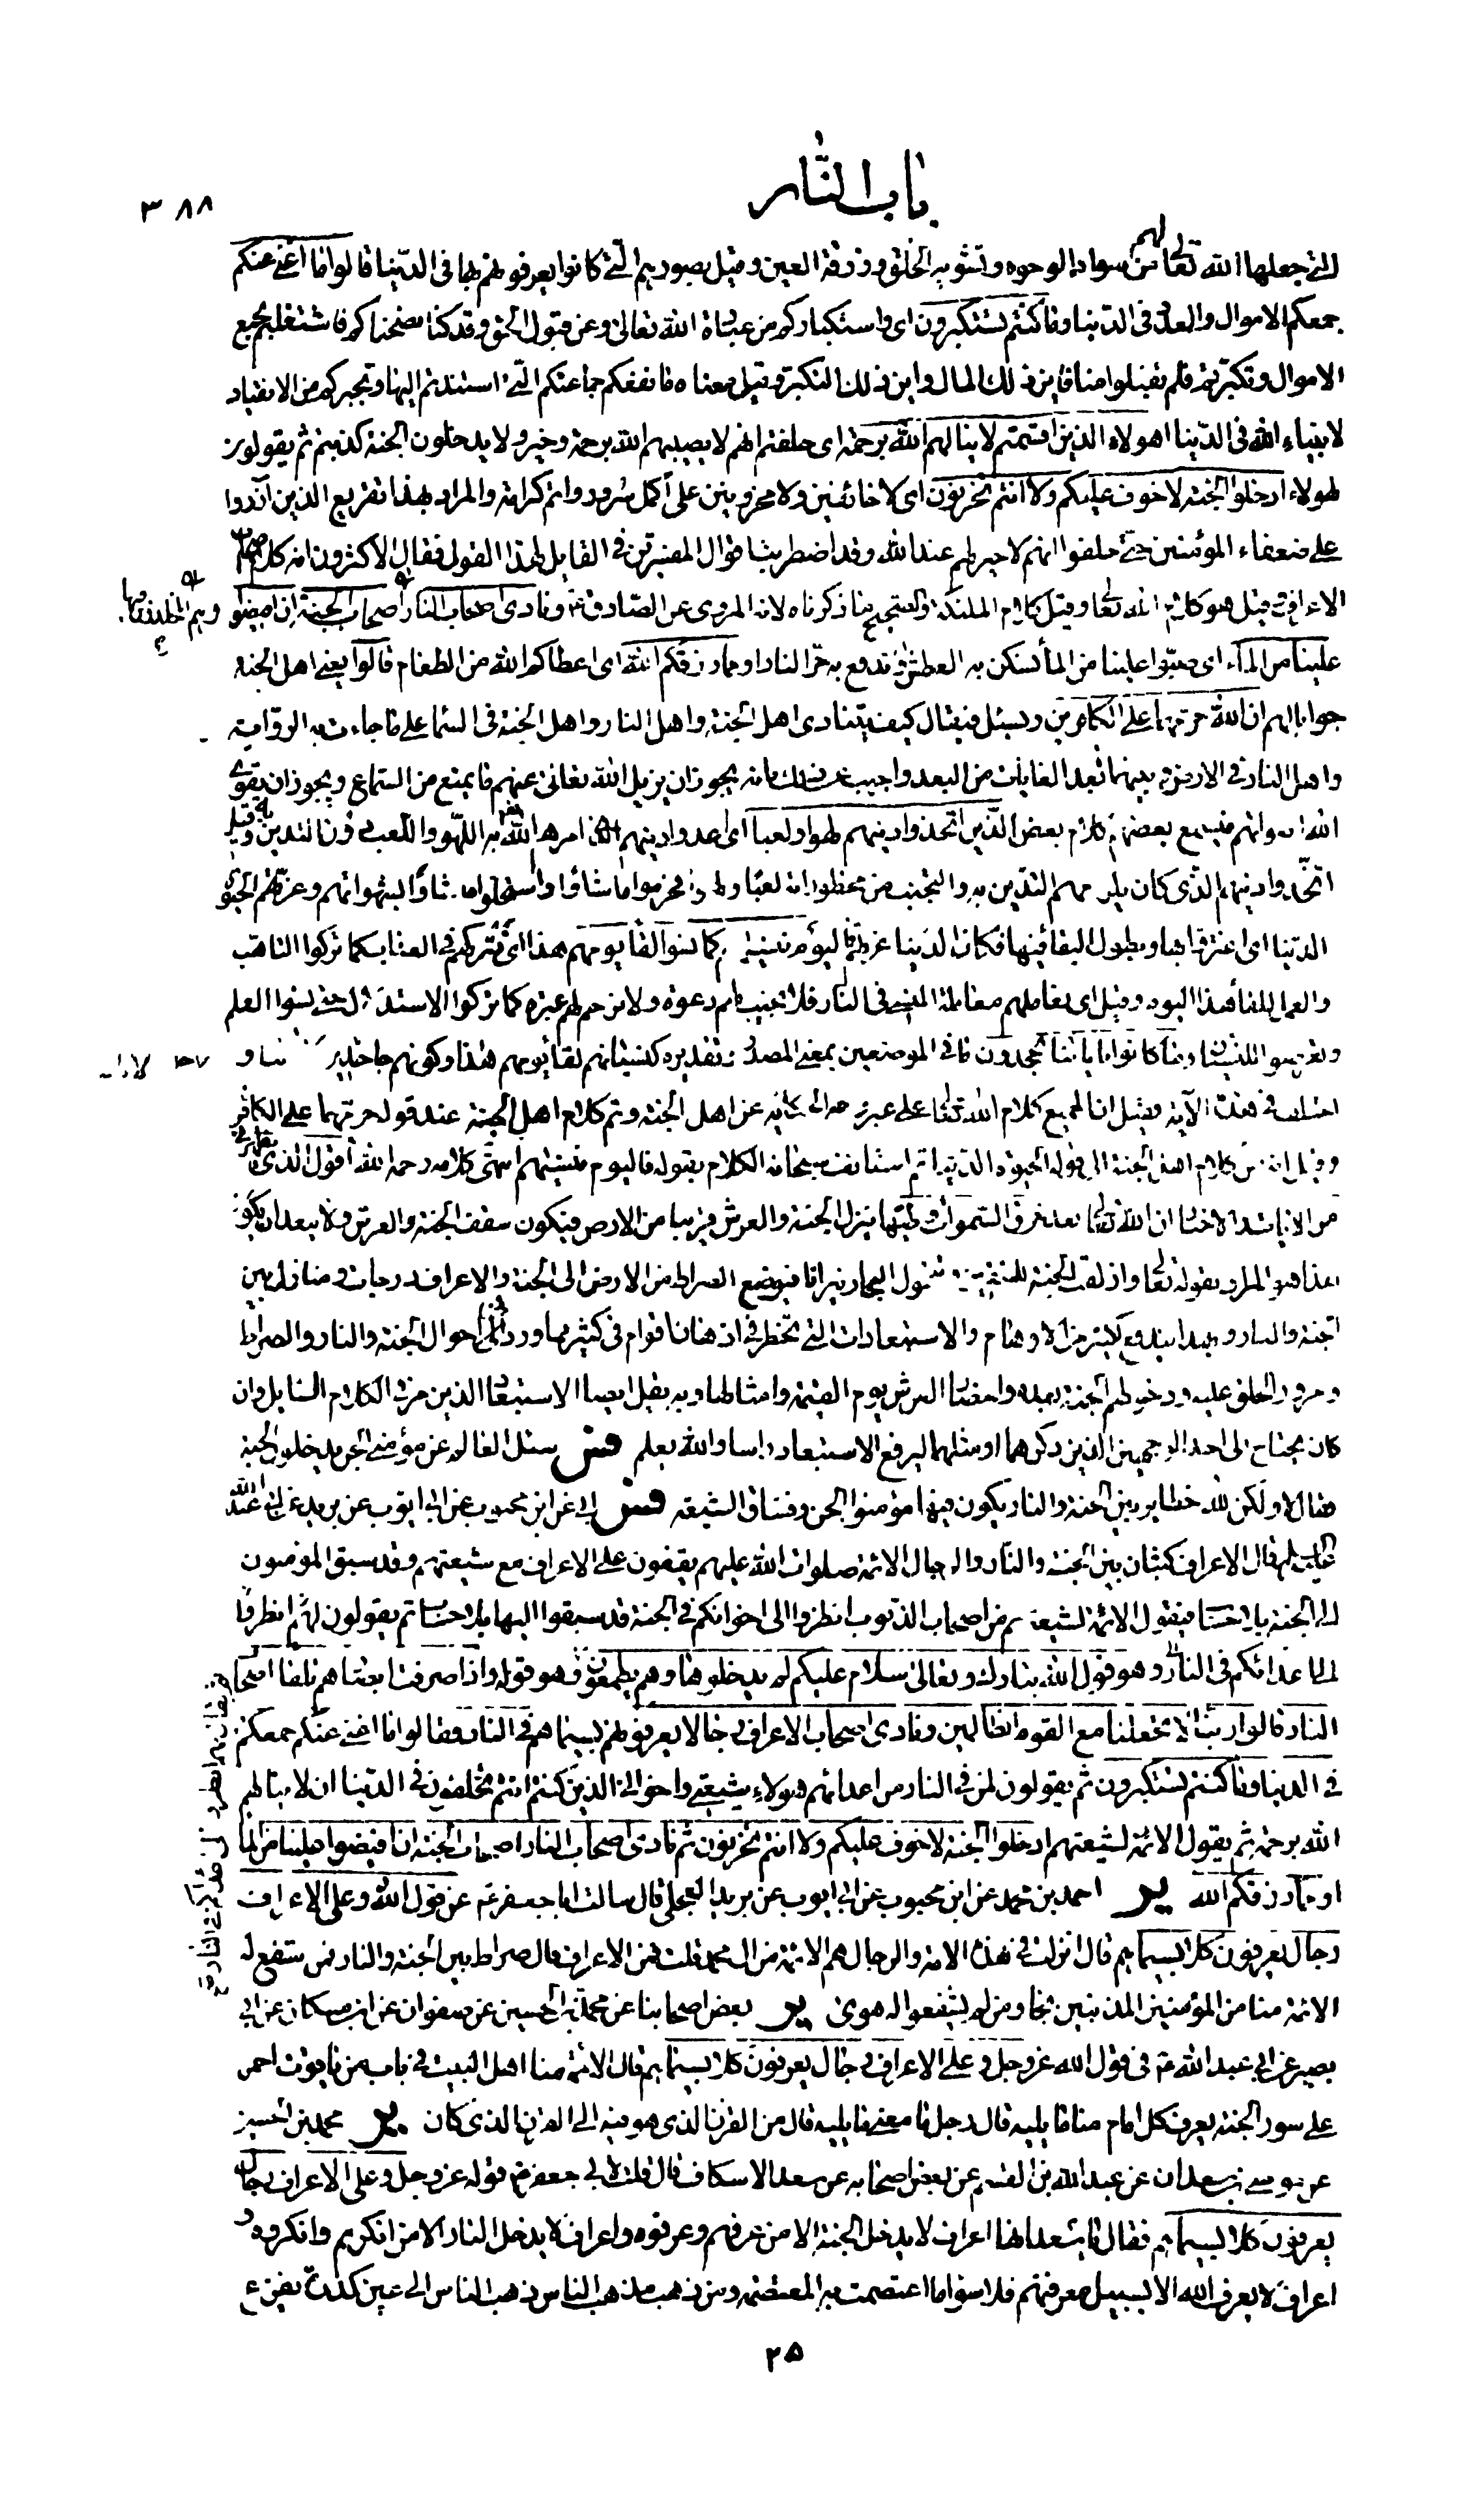 باب النار
٣٨٨
التي جعلها الله تعالى لهم من سواد الوجوه وتشويه الخلق وزرقة العين وقيل بصورهم التي كانوا يعرفونهم بها في الدنيا قالوا ما اغنى عنكم
جمعكم الاموال والعدد في الدنيا وما كنتم تستكبرون اي واستكباركم من عبادة الله تعالى وعن قبول الحق وقد كنا نصحناكم فاشتغلتم بجمع
الاموال وتكبرتم فلم تقبلوا منا فاين ذلك المال واين ذلك التكبر وقيل معناه ما نفعكم جماعتكم التي استندتم اليها وتجبركم من الانقياد
لانبياء الله في الدنيا اهولاء الذين اقسمتم لا ينالهم الله برحمة اي حلفتم انهم لا يصيبهم الله برحمة وخير ولا يدخلون الجنة كذبتم ثم يقولون
لهولاء ادخلوا الجنة لا خوف عليكم ولا انتم تحزنون اي لا خائفين ولا محزونين على اكمل سرور واتم كرامة والمراد بهذا تقريع الذين ازروا
على ضعفاء المؤمنين حتى حلفوا انهم لا خير لهم عند الله وقد اضطربت اقوال المفسرين في القايل لهذا القول فقال الاكثرون انه كلام اصحاب
الاعراف وقيل هو كلام الله تعالى وقيل كلام الملئكة والصحيح ما ذكرناه لانه المروي عن الصادق ع ونادى اصحاب النار اصحاب الجنة ان افيضوا
علينا من الماء اي صبوا علينا من الماء نسكن به العطش او ندفع به حر النار او مما رزقكم الله اي اعطاكم الله من الطعام قالوا يعني اهل الجنة
جوابا لهم ان الله حرمهما على الكافرين ويسئل فيقال كيف يتنادى اهل الجنة واهل النار واهل الجنة في السما على ما جاءت به الرواية
واهل النار في الارض وبينهما ابعد الغايات من البعد واجيب عن ذلك بانه يجوز ان يزيل الله تعالى عنهم ما يمنع من السماع ويجوز ان يقوي
الله اصواتهم فيسمع بعضهم كلام بعض الذين اتخذوا دينهم لهوا ولعبا اي اعدوا دينهم الذي امرهم الله به اللهو واللعب دون التدين به وقيل
اتخذوا دينهم الذي كان يلزمهم التدين به والتجنب من محظوراته لعبا ولهوا فحرموا ما شاؤا واستحلوا ما شاؤا بشهواتهم وغرتهم الحيوة
الدنيا اي اغتروا بها وبطول البقاء فيها فكان الدنيا غرتهم فاليوم ننسيهم كما نسوا لقاء يومهم هذا اي نتركهم في العذاب كما تركوا التاهب
والعمل للقاء هذا اليوم وقيل اي نعاملهم معاملة المنسي في النار فلا نجيب لهم دعوة ولا نرحم لهم عبرة كما تركوا الاستدلال حتى نسوا العلم
وتعرضوا للنسيان وما كانوا باياتنا يجحدون ما في الموضعين بمعنى المصدر وتقديره كنسيانهم لقاء يومهم هذا وكونهم جاحدين
اختلف في هذه الآية فقيل ان الجميع كلام الله تعالى على غير حكاية عن اهل الجنة وتم كلام اهل الجنة عند قوله حرمهما على الكافرين
وقيل انه من كلام اهل الجنة الى قوله الحيوة الدنيا ثم استانف سبحانه الكلام بقوله فاليوم ننسيهم انتهى كلامه رحمه الله اقول الذي
من الايات والاخبار ان الله تعالى بعد خرق السموات وطيها ينزل الجنة والعرش قريبا من الارض فيكون سقف الجنة العرش ولا يبعد ان يكون
هذا هو المراد بقوله تعالى وازلفت الجنة للمتقين وتتحول البحار نيرانا فيوضع الصراط من الارض الى الجنة والاعراف درجات ومنازل بين
الجنة والنار وبهذا يندفع كثير من الاوهام والاستبعادات التي تخطر في اذهان اقوام في كثير مما ورد في احوال الجنة والنار والصراط
ومرور الخلق عليه ودخولهم الجنة بعده واحضار العرش يوم القيمة وامثالها وبه يقل ايضا الاستبعاد الذي مر في الكلام السابق وان
كان يحتاج الى احد الوجهين الذين ذكرهما او مثلهما ليرفع الاستبعاد راسا والله يعلم فس سئل العالم عن مؤمني الجن يدخلون الجنة
فقال لا ولكن لله حظاير بين الجنة والنار يكون فيها مؤمنوا الجن وفساق الشيعة فس ابي عن ابن محبوب عن ابي ايوب عن بريد عن ابي عبد الله
عليه السلام قال الاعراف كثبان بين الجنة والنار والرجال الائمة صلوات الله عليهم يقفون على الاعراف مع شيعتهم وقد سبق المؤمنون
الى الجنة بلا حساب فيقول الائمة لشيعتهم من اصحاب الذنوب انظروا الى اخوانكم في الجنة قد سبقوا اليها بلا حساب ثم يقولون لهم انظروا
الى اعدائكم في النار وهو قول الله تبارك وتعالى سلام عليكم لم يدخلوها وهم يطمعون وهو قوله واذا صرفت ابصارهم تلقاء اصحاب
النار قالوا ربنا لا تجعلنا مع القوم الظالمين ونادى اصحاب الاعراف رجالا يعرفونهم بسيماهم في النار فقالوا ما اغنى عنكم جمعكم
في الدنيا وما كنتم تستكبرون ثم يقولون لمن في النار من اعدائهم هولاء شيعتي واخواني الذين كنتم انتم تحلفون في الدنيا ان لا ينالهم
الله برحمة ثم يقول الائمة لشيعتهم ادخلوا الجنة لا خوف عليكم ولا انتم تحزنون ثم نادى اصحاب النار اصحاب الجنة ان افيضوا علينا من الماء
او مما رزقكم الله ير احمد بن محمد عن ابن محبوب عن ابي ايوب عن بريد العجلي قال سالت ابا جعفر ع عن قول الله وعلى الاعراف
رجال يعرفون كلا بسيماهم قال انزلت في هذه الامة والرجال هم الائمة من ال محمد قلت فمن الاعراف قال صراط بين الجنة والنار فمن شفع له
الائمة منا من المؤمنين المذنبين نجا ومن لم يشفعوا له هوى ير بعض اصحابنا عن محمد بن الحسين عن صفوان عن ابن مسكان عن ابي
بصير عن ابي عبد الله ع في قول الله عز وجل وعلى الاعراف رجال يعرفون كلا بسيماهم قال الائمة منا اهل البيت في باب من ياقوت احمر
على سور الجنة يعرف كل امام منا ما يليه قال رجل ما معنى ما يليه قال من القرن الذي هو فيه الى القرن الذي كان ير محمد بن الحسين
عن موسى بن سعدان عن عبد الله بن القسم عن بعض اصحابه عن سعد الاسكاف قال قلت لابي جعفر ع قوله عز وجل وعلى الاعراف رجال
يعرفون كلا بسيماهم فقال يا سعد انها اعراف لا يدخل الجنة الا من عرفهم وعرفوه واعراف لا يدخل النار الا من انكرهم وانكروه و
اعراف لا يعرف الله الا بسبيل معرفتهم فلا سواء ما اعتصمت به المعتصمة ومن ذهب مذهب الناس ذهب الناس الى عين كدرة يفرغ
٢٥